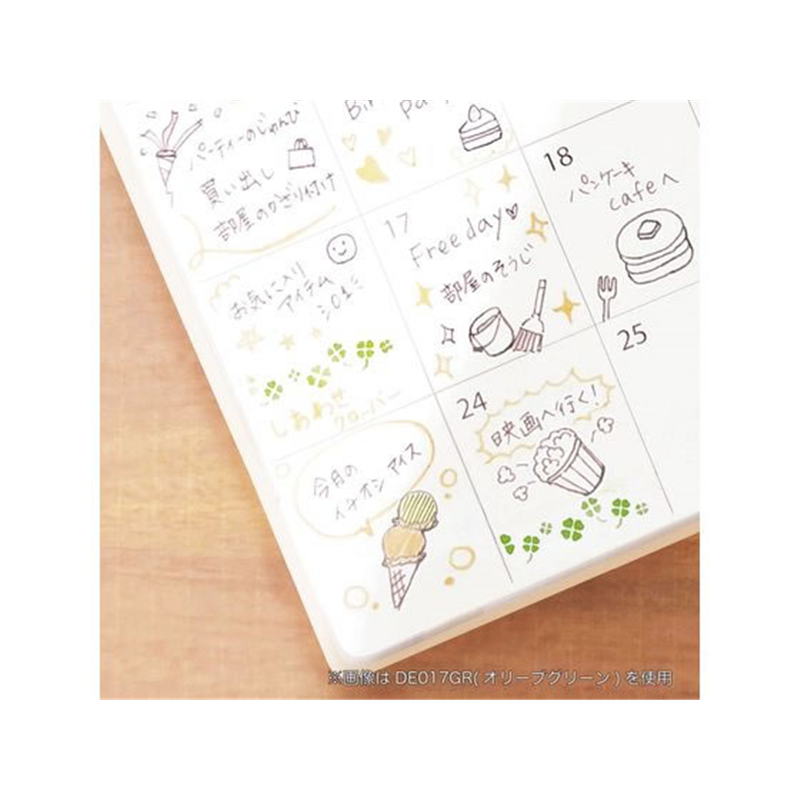 パーティーのじゅんび
買い出し
部屋のかざり付け
18
パンケーキ
cafeへ
17
Free day♡
部屋のそうじ
お気に入り
アイテム
しあわせ
クローバー
25
24
映画へ行く!
今月の
イチオシ アイス
※画像は DE017GR( オリーブグリーン ) を使用